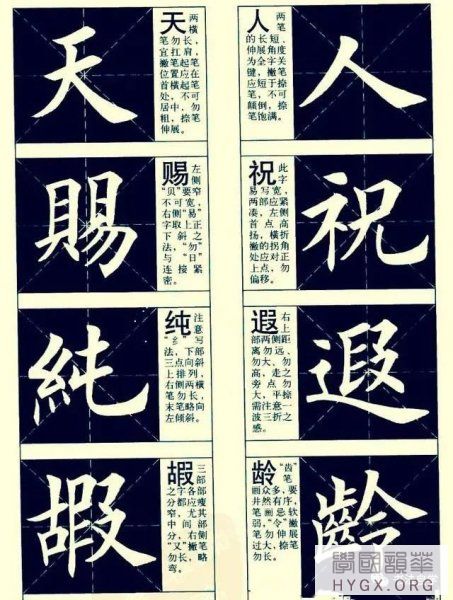 天
天
两横
笔勿长，
宜扛肩，
撇笔起笔
位置应在
首横起笔
处，不可
居中，勿
粗，捺笔
伸展。
賜
赐
左侧
“贝”要窄
不可宽，
右侧“易”
字取上正
下斜之
法，“勿”
与“日”
连接紧
密。
純
纯
注意
“纟”写
法，下部
三点向斜
上排列，
右侧两横
笔勿长，
末笔略向
左倾斜。
嘏
嘏
三部
之字各部
分都应瘦
窄，尤其
中间部
分，右侧
“又”撇笔
勿长，略
弯。
人
人
两笔
的长短、
伸展角度
为全字关
键，撇笔
应短于捺
笔，不可
颠倒，捺
笔饱满。
祝
祝
此字
易写宽，
两部应紧
凑，左侧
首点高
扬，横折
撇的拐角
处应对正
上点，勿
偏移。
遐
遐
右上
部两侧距
离勿远、
勿大、勿
高，走之
旁点勿
大，平捺
需注意一
波三折之
感。
齡
龄
“齿”笔
画众多，要
井然有序，
笔画忌软
弱，“令”撇
笔勿伸展
过大，捺笔
勿长。
學國韻華
HYGX.ORG